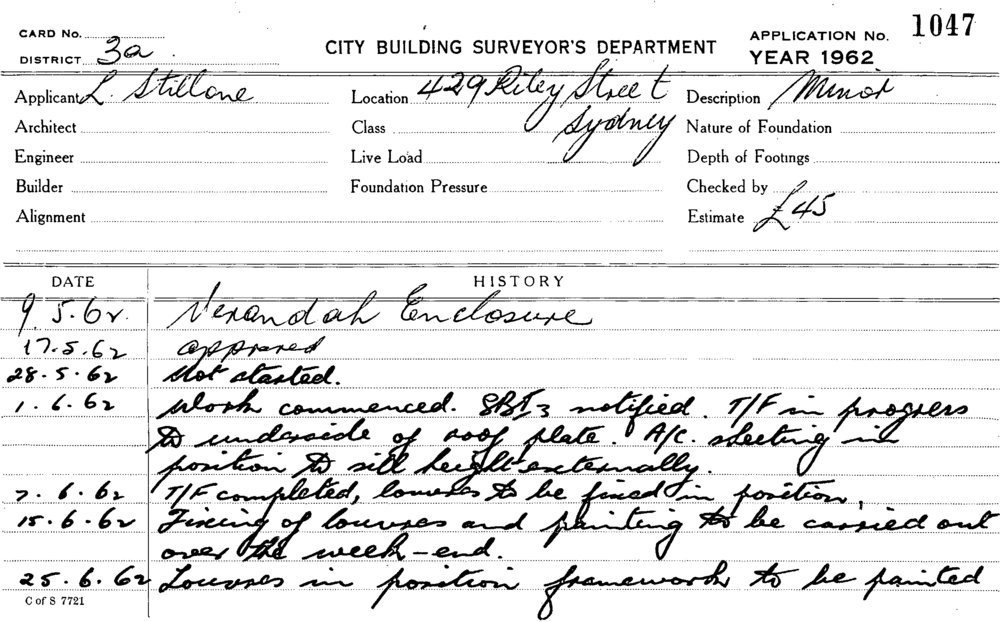 CARD No.
DISTRICT 3a
CITY BUILDING SURVEYOR'S DEPARTMENT
APPLICATION No. 1047
YEAR 1962
Applicant L. Stillone Location 429 Riley Street Description Minor
Architect Class Sydney Nature of Foundation
Engineer Live Load Depth of Footings
Builder Foundation Pressure Checked by
Alignment Estimate £45
DATE HISTORY
9.5.62. Verandah Enclosure
17.5.62 approved
28.5.62 Not started.
1.6.62 Work commenced. SBI 3 notified. T/F in progress
to underside of roof plate. A/C. sheeting in
position to sill height externally.
7.6.62 T/F completed, louvres to be fixed in position.
15.6.62 Fixing of louvres and painting to be carried out
over the week-end.
25.6.62 Louvres in position framework to be painted
C of S 7721